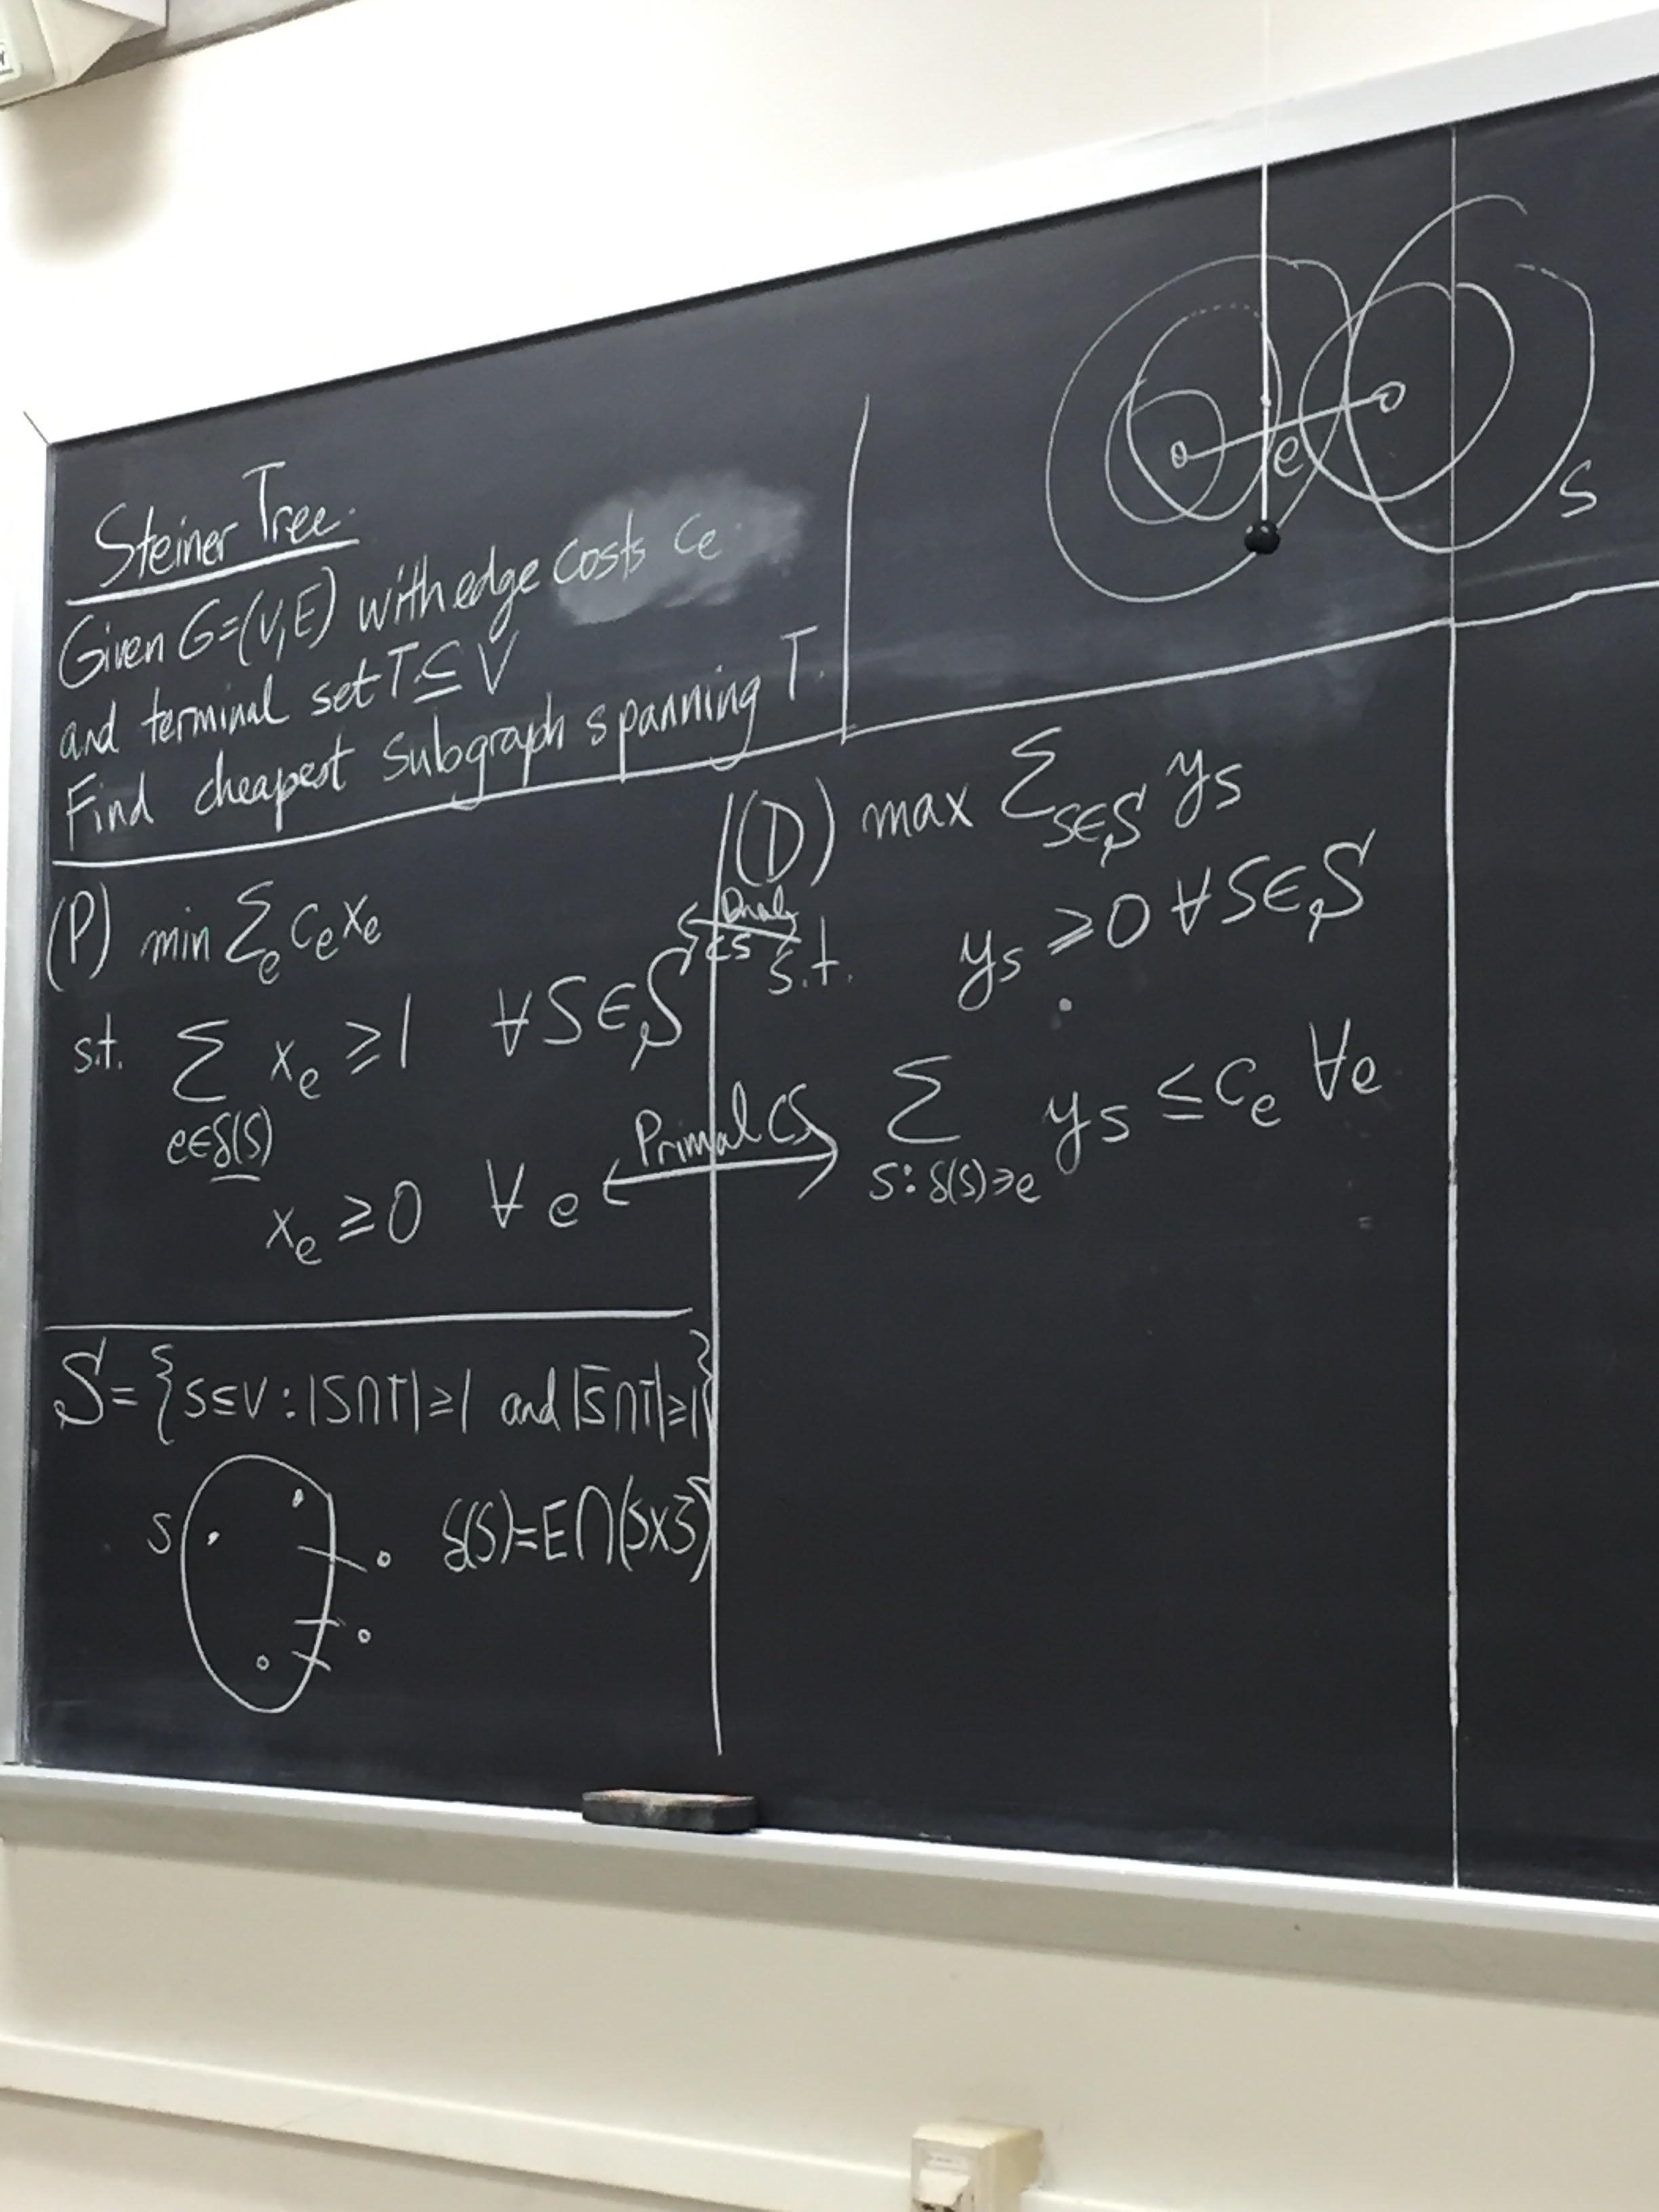 Steiner Tree.
Given G=(V,E) with edge costs cₑ.
and terminal set T⊆V
Find cheapest subgraph spanning T.
e
S
(P) min Σₑ cₑxₑ
s.t. Σ_{e∈δ(S)} xₑ ≥ 1 ∀S∈𝒮
xₑ ≥ 0 ∀e
Dual CS
Primal CS
(D) max Σ_{S∈𝒮} y_S
s.t. y_S ≥ 0 ∀S∈𝒮
Σ_{S:δ(S)∋e} y_S ≤ cₑ ∀e
𝒮 = {S⊆V : |S∩T| ≥ 1 and |S̅∩T| ≥ 1}
S
δ(S)=E∩(S×S̅)